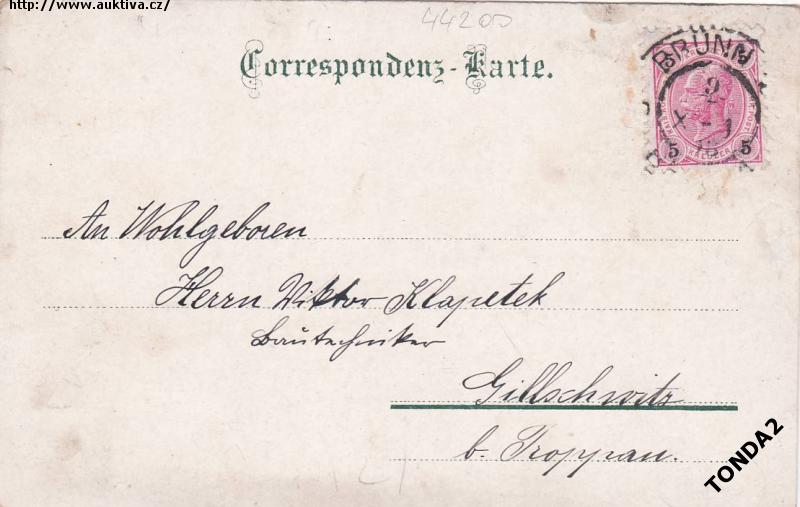 http://www.auktiva.cz/
44200
Correspondenz-Karte.
BRÜNN
5 KREUZER 5
An Wohlgeboren
Herrn Viktor Klapetek
Bautechniker
Gillschwitz
b. Troppau.
TONDA2